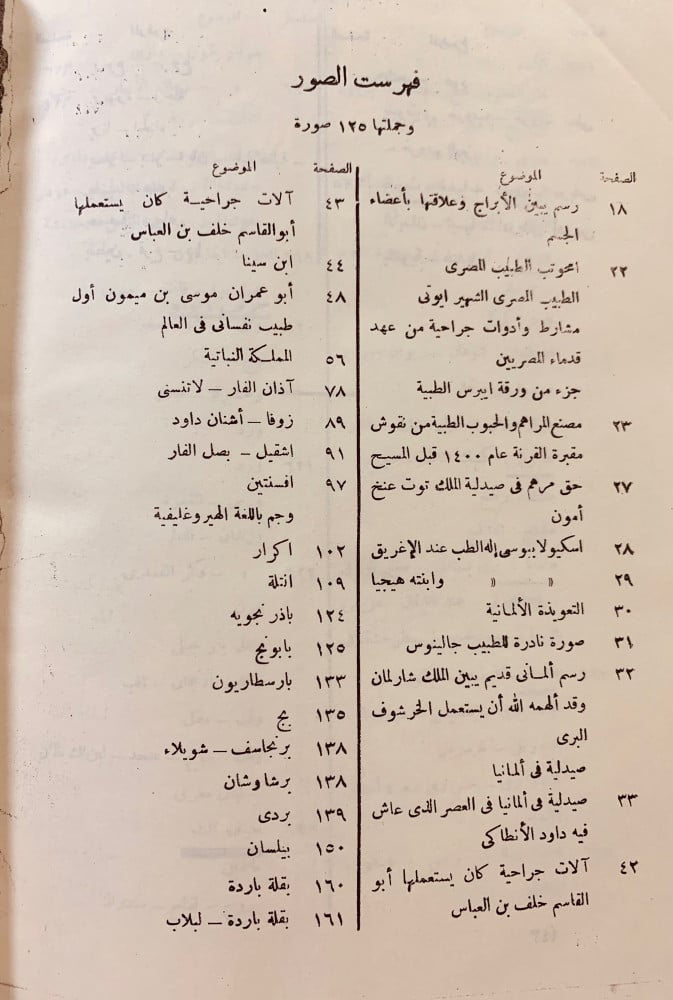 فهرست الصور
وجملتها ١٢٥ صورة
الصفحة الموضوع
١٨ رسم يبين الأبراج وعلاقتها بأعضاء
الجسم
٢٢ امحوتب الطبيب المصرى
الطبيب المصرى الشهير ايوتى
مشارط وأدوات جراحية من عهد
قدماء المصريين
جزء من ورقة ايبرس الطبية
٢٣ مصنع المراهم والحبوب الطبية من نقوش
مقبرة القرنة عام ١٤٠٠ قبل المسيح
٢٧ حق مرهم فى صيدلية الملك توت عنخ
أمون
٢٨ اسكيولابيوسى إله الطب عند الإغريق
٢٩ » » وابنته هيجيا
٣٠ التعويذة الألمانية
٣١ صورة نادرة للطبيب جالينوس
٣٢ رسم ألمانى قديم يبين الملك شارلمان
وقد ألهمه الله أن يستعمل الخرشوف
البرى
صيدلية فى ألمانيا
٣٣ صيدلية فى ألمانيا فى العصر الذى عاش
فيه داود الأنطاكى
٤٢ آلات جراحية كان يستعملها أبو
القاسم خلف بن العباس
الصفحة الموضوع
٤٣ آلات جراحية كان يستعملها
أبو القاسم خلف بن العباس
٤٤ ابن سينا
٤٨ أبو عمران موسى بن ميمون أول
طبيب نفسانى فى العالم
٥٦ المملكة النباتية
٧٨ آذان الفار — لاتنسنى
٨٩ زوفا — أشنان داود
٩١ اشقيل — بصل الفار
٩٧ افسنتين
وجم باللغة الهيروغليفية
١٠٢ اكرار
١٠٩ انتلة
١٢٤ باذرنجويه
١٢٥ بابونج
١٣٣ بارسطاريون
١٣٥ بج
١٣٨ برنجاسف — شويلاء
١٣٨ برشاوشان
١٣٩ بردى
١٥٠ بيلسان
١٦٠ بقلة باردة
١٦١ بقلة باردة — لبلاب